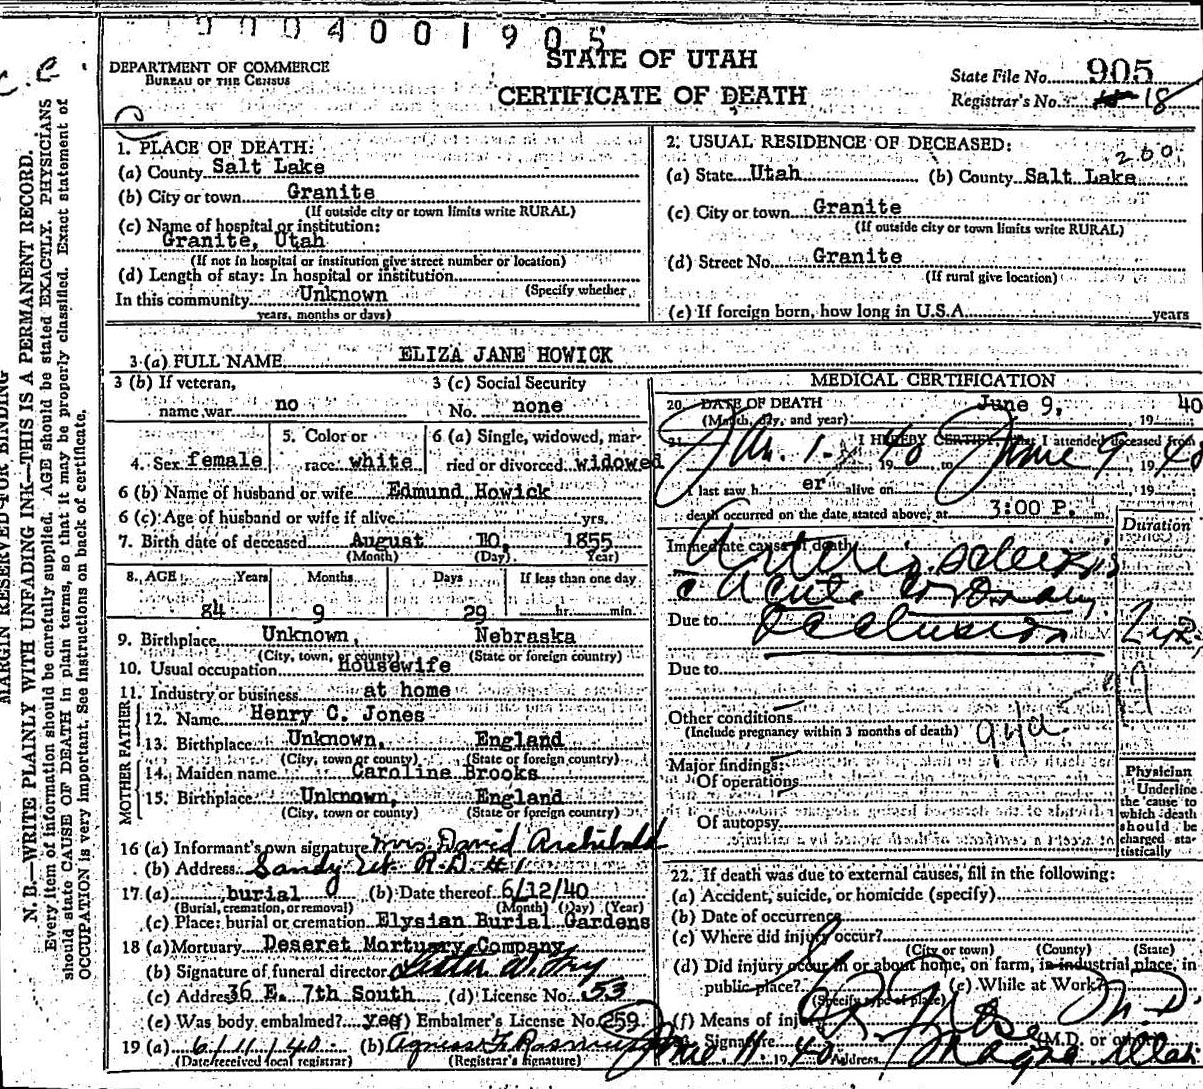 9004001905
STATE OF UTAH
CERTIFICATE OF DEATH
DEPARTMENT OF COMMERCE
BUREAU OF THE CENSUS
State File No. 905
Registrar's No. 18
MARGIN RESERVED FOR BINDING
N. B.—WRITE PLAINLY WITH UNFADING INK—THIS IS A PERMANENT RECORD.
Every item of information should be carefully supplied. AGE should be stated EXACTLY. PHYSICIANS
should state CAUSE OF DEATH in plain terms, so that it may be properly classified. Exact statement of
OCCUPATION is very important. See instructions on back of certificate.
1. PLACE OF DEATH:
(a) County Salt Lake
(b) City or town Granite
(If outside city or town limits write RURAL)
(c) Name of hospital or institution:
Granite, Utah
(If not in hospital or institution give street number or location)
(d) Length of stay: In hospital or institution
(Specify whether
In this community Unknown
years, months or days)
2. USUAL RESIDENCE OF DECEASED:
200
(a) State Utah (b) County Salt Lake
(c) City or town Granite
(If outside city or town limits write RURAL)
(d) Street No. Granite
(If rural give location)
(e) If foreign born, how long in U.S.A. years
3 (a) FULL NAME ELIZA JANE HOWICK
3 (b) If veteran, name war no
3 (c) Social Security No. none
4. Sex female
5. Color or race white
6 (a) Single, widowed, married or divorced widowed
6 (b) Name of husband or wife Edmund Howick
6 (c) Age of husband or wife if alive yrs.
7. Birth date of deceased August 10, 1855
(Month) (Day) Year)
8. AGE Years Months Days If less than one day
84 9 29 hr. min.
9. Birthplace Unknown, Nebraska
(City, town, or county) (State or foreign country)
10. Usual occupation Housewife
11. Industry or business at home
FATHER
12. Name Henry C. Jones
13. Birthplace Unknown, England
(City, town or county) (State or foreign country)
MOTHER
14. Maiden name Caroline Brooks
15. Birthplace Unknown, England
(City, town or county) (State or foreign country)
16 (a) Informant's own signature Mrs. David Archibald
(b) Address Sandy Ut R.D. #1
17 (a) burial (b) Date thereof 6/12/40
(Burial, cremation, or removal) (Month) (Day) (Year)
(c) Place: burial or cremation Elysian Burial Gardens
18 (a) Mortuary Deseret Mortuary Company
(b) Signature of funeral director
(c) Address 36 E. 7th South (d) License No. 53
(e) Was body embalmed? yes (f) Embalmer's License No. 259
19 (a) 6/11/40 (b) Agness
(Date received local registrar) (Registrar's signature)
MEDICAL CERTIFICATION
20. DATE OF DEATH June 9, 1940
(Month, day, and year)
21. I HEREBY CERTIFY, that I attended deceased from
Jan. 1- 1940 to June 9 1940
I last saw her alive on , 19
death occurred on the date stated above, at 3:00 P. m.
Duration
Immediate cause of death
Arterio sclerosis
c acute coronary
Due to occlusion 2 yrs
Due to
Other conditions
(Include pregnancy within 3 months of death) 94a
Major findings:
Of operations
Of autopsy
Physician
Underline
the cause to
which death
should be
charged statistically
22. If death was due to external causes, fill in the following:
(a) Accident, suicide, or homicide (specify)
(b) Date of occurrence
(c) Where did injury occur?
(City or town) (County) (State)
(d) Did injury occur in or about home, on farm, in industrial place, in
public place? (e) While at Work?
(Specify type of place)
(f) Means of injury
Signature M.D.
(M.D. or other)
June 11. 1940 Address Magna Utah